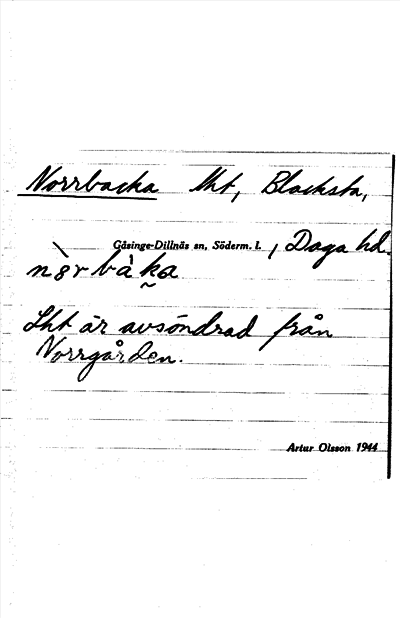 Norrbacka lht, Blacksta,
Gåsinge-Dillnäs sn, Söderm. l. , Daga hd.
nòrbàka
Lht är avsöndrad från
Norrgården.
Artur Olsson 1944